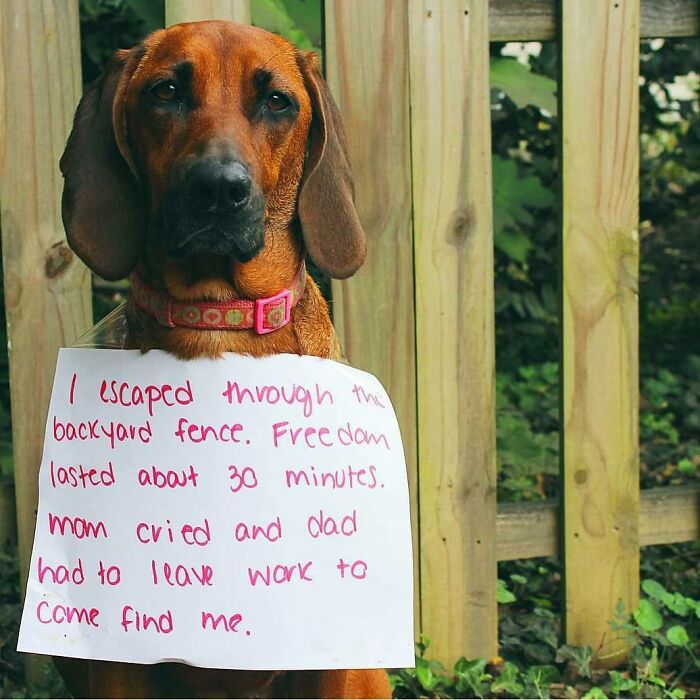 I escaped through the
backyard fence. Freedom
lasted about 30 minutes.
mom cried and dad
had to leave work to
come find me.